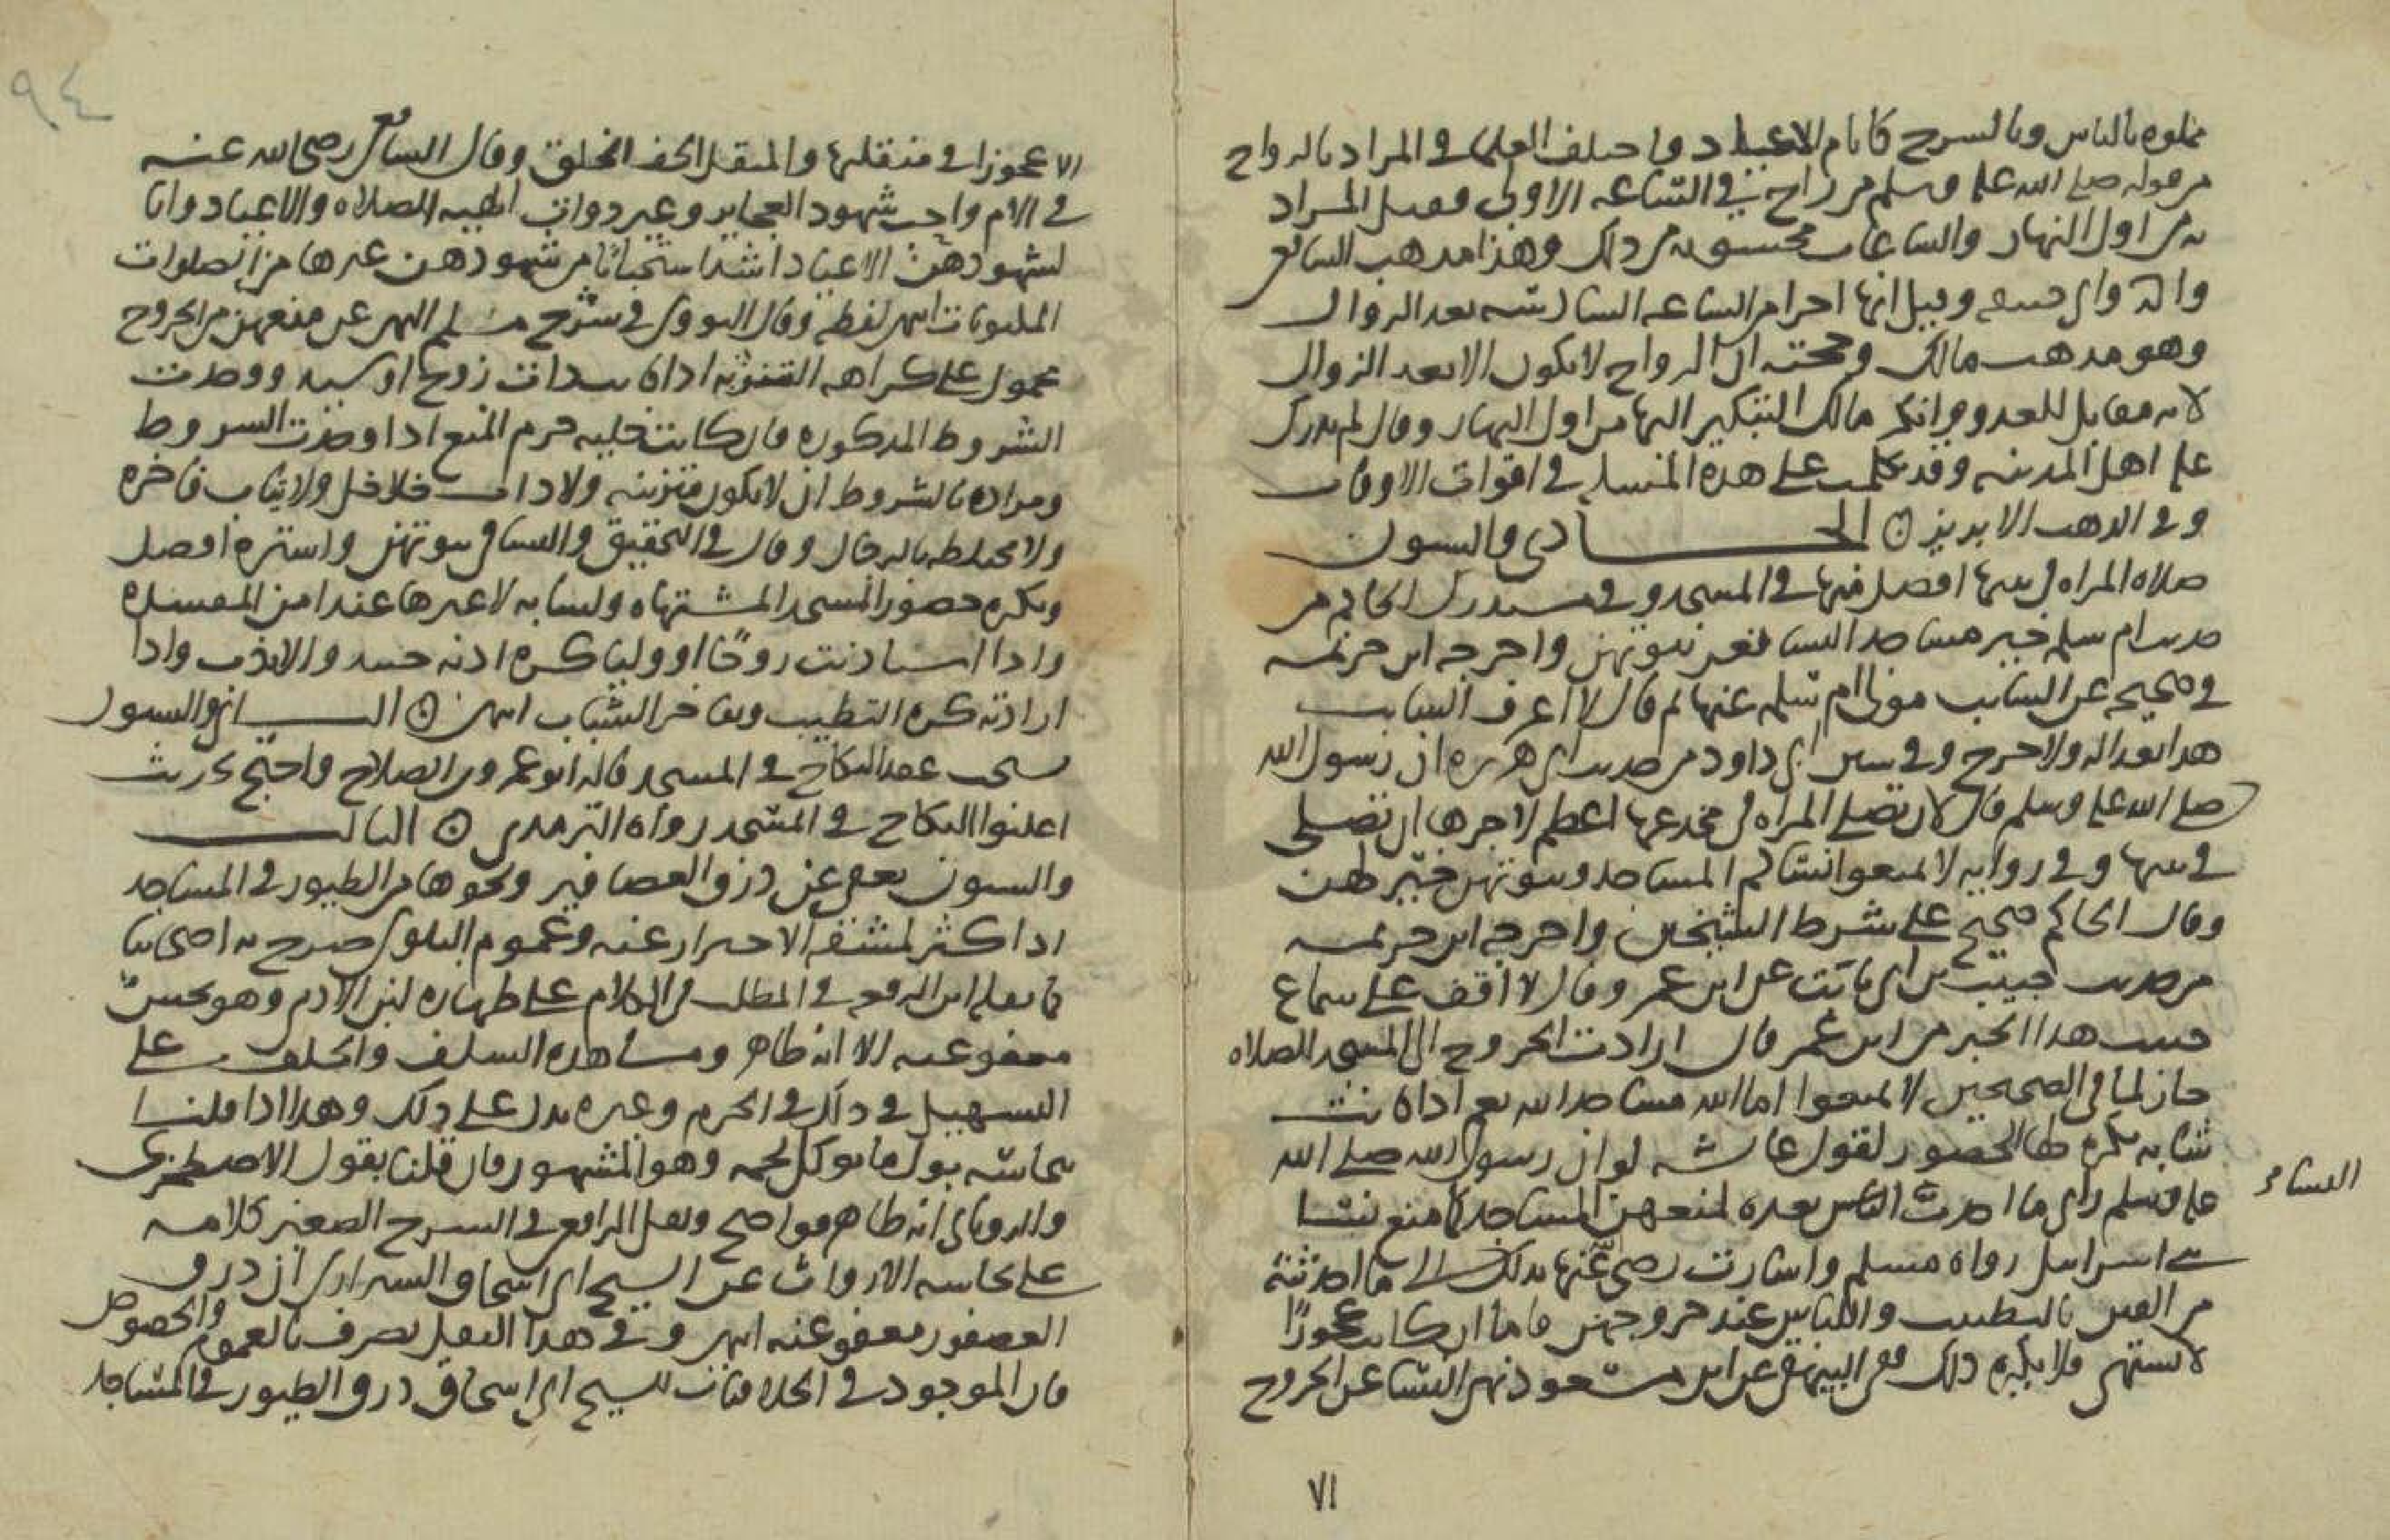 مملوه بالناس وبالسرج كايام الاعياد واختلف العلما في المراد بالرواح
من قوله صلى الله عليه وسلم من راح في الساعه الاولى فقيل المراد
به من اول النهار والساعات محسوبه من ذلك وهذا مذهب الشافعي
وابي حنيفه وقيل انها اجزا من الساعه السادسه بعد الزوال
وهو مذهب مالك وحجته ان الرواح لا يكون الا بعد الزوال
لانه مقابل للغدو وانكر مالك التبكير اليها من اول النهار وقال لم يدرك
عليه اهل المدينه وقد تكلمت على هذه المسله في اقوات الاوقات
وفي الذهب الابريز ۞ الحادي والستون
صلاه المراه في بيتها افضل منها في المسجد وفي مستدرك الحاكم من
حديث ام سلمه خير مساجد النسا قعر بيوتهن واخرجه ابن خزيمه
في صحيحه عن السايب مولى ام سلمه عنها ثم قال لا اعرف السايب
هذا بعداله ولا جرح وفي سنن ابي داود من حديث ابي هريره ان رسول الله
صلى الله عليه وسلم قال لان تصلي المراه في مخدعها اعظم لاجرها ان تصلي
في بيتها وفي روايه لا تمنعوا نساكم المساجد وبيوتهن خير لهن
وقال الحاكم صحيح على شرط الشيخين واخرجه ابن خزيمه
من حديث حبيب بن ابي ثابت عن ابن عمر وقال لا اقف على سماع
حبيب هذا الخبر من ابن عمر فان ارادت الخروج الى المسجد للصلاه
جاز لما في الصحيحين لا تمنعوا اما الله مساجد الله نعم اذا كانت
شابه يكره لها الحضور لقول عايشه لو ان رسول الله صلى الله
عليه وسلم راى ما احدث الناس بعده لمنعهن المساجد كما منع نسا
النسا
بني اسرايل رواه مسلم واشارت رضي عنها بذلك الى ما احدثته
من الفتن بالتطيب واللباس عند خروجهن فاما ان كانت عجوزا
لا تشتهى فلا يكره ذلك فعن البيهقي عن ابن مسعود نهى النسا عن الخروج
٧١
٩٤
الا عجوزا في منقليها والمنقل الخف الخلق وقال الشافعي رضي الله عنه
في الام واحب شهود العجايز وغير ذوات الهيه الصلاه والاعياد وانا
لشهودهن الاعياد اشد استحبابا من شهودهن غيرها من الصلوات
المكتوبات انتهى لفظه وقال النووي في شرح مسلم النهي عن منعهن من الخروج
محمول على كراهه التنزيه اذا كانت ذات زوج او سيد ووجدت
الشروط المذكوره فان كانت خليه حرم المنع اذا وجدت الشروط
ومراده بالشروط ان لا يكون متزينه ولا ذات خلاخل ولا ثياب فاخره
ولا مختلطه بالرجال وقال في التحقيق والنسا في بيوتهن واستره افضل
ويكره حضور المسجد المشتهاه ولشابه لا غيرها عند امن المفسده
واذا استاذنت زوجا او وليا كره اذنه حيث والا ندب واذا
ارادته كره التطيب وفاخر الثياب انتهى ۞ الثاني والستون
يستحب عقد النكاح في المسجد قاله ابو عمرو بن الصلاح واحتج بحديث
اعلنوا النكاح في المسجد رواه الترمذي ۞ الثالث
والستون يعفى عن ذرق العصافير ونحوها من الطيور في المساجد
اذا كثر لمشقه الاحتراز عنه وعموم البلوى صرح به اصحابنا
فما نقله ابن الرفعه في المطلب في الكلام على طهاره لبن الادمي وهو نجس
معفو عنه الا انه طاهر ومشاهده السلف والخلف على
التسهيل في ذلك في الحرم وغيره يدل على ذلك وهذا اذا قلنا
بنجاسه بول ما يوكل لحمه وهو المشهور فان قلنا بقول الاصطخري
والروياني انه طاهر فواضح ونقل الرافعي في الشرح الصغير كلامه
على نجاسه الارواث عن الشيخ ابي اسحاق الشيرازي ان ذرق
العصفور معفو عنه انتهى وفي هذا النقل تصرف بالعموم والخصوص
فان الموجود في الخلافيات للشيخ ابي اسحاق ذرق الطيور في المساجد